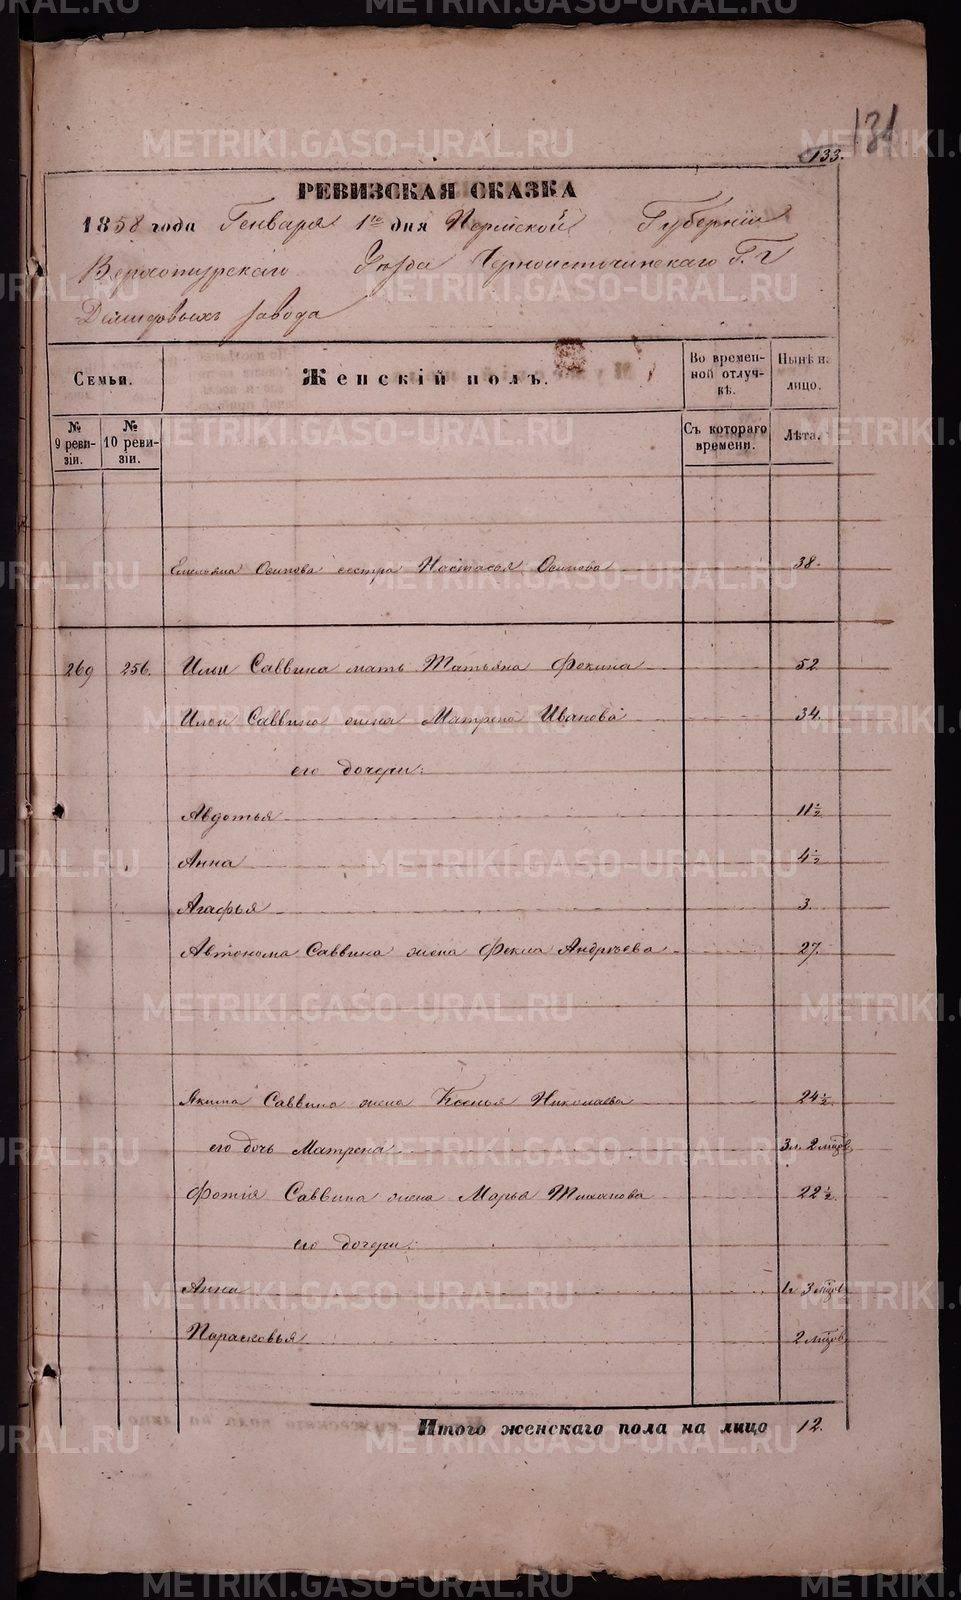 131
133.
РЕВИЗСКАЯ СКАЗКА
1858 года Генваря 1го дня Пермской Губерніи
Верхотурскаго Уѣзда Черноисточинскаго Г.г
Демидовыхъ завода
Семьи.
Женскій полъ.
Во времен-
ной отлуч-
кѣ.
Нынѣ на
лицо.
№
9 реви-
зіи.
№
10 реви-
зіи.
Съ котораго
времени.
Лѣта.
Емельяна Осипова сестра Настасья Осипова 38.
269 256. Ильи Саввина мать Татьяна Фокина 52
Ильи Саввина жена Матрена Иванова 34.
его дочери:
Авдотья 11½
Анна 4½
Агафья 3.
Автонома Саввина жена Фекла Андреева 27.
Якима Саввина жена Ксенья Николаева 24½.
его дочь Матрена 3л. 2 мцов
Фотія Саввина жена Марья 22½.
его дочери:
Анна 1г 3 мцов
Парасковья 2 мцов
Итого женскаго пола на лицо 12.
METRIKI.GASO-URAL.RU